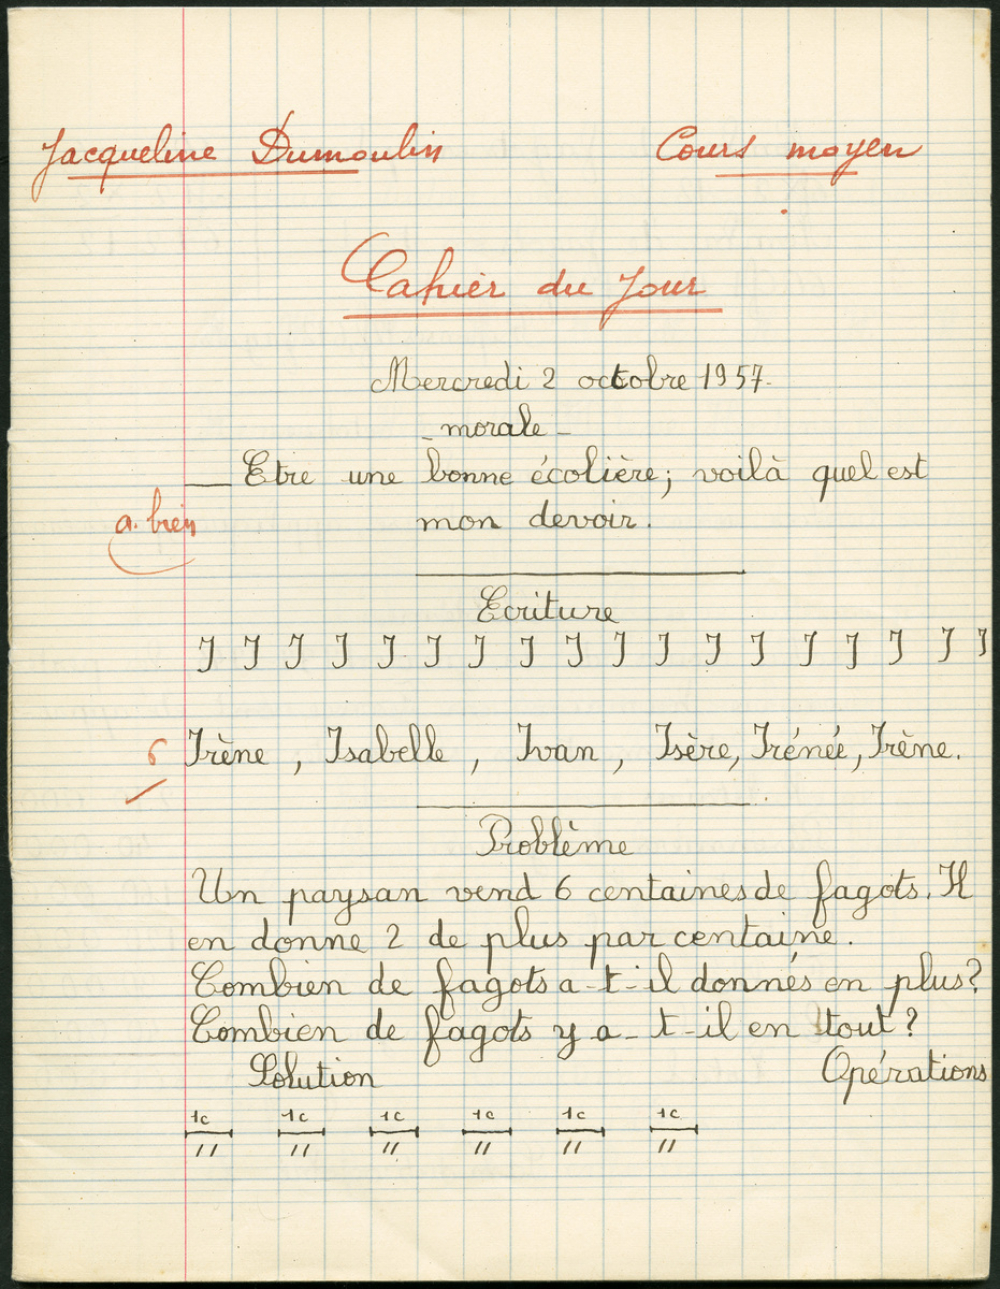 Jacqueline Dumoulin Cours moyen
Cahier du jour
Mercredi 2 octobre 1957.
- morale -
Etre une bonne écolière; voilà quel est
a. bien
mon devoir.
Ecriture
I I I I I I I I I I I I I I I I I I
6
Irène, Isabelle, Ivan, Isère, Irénée, Irène.
Problème
Un paysan vend 6 centaines de fagots. Il
en donne 2 de plus par centaine.
Combien de fagots a-t-il donnés en plus?
Combien de fagots y a-t-il en tout?
Solution Opérations
1c 1c 1c 1c 1c 1c
11 11 11 11 11 11